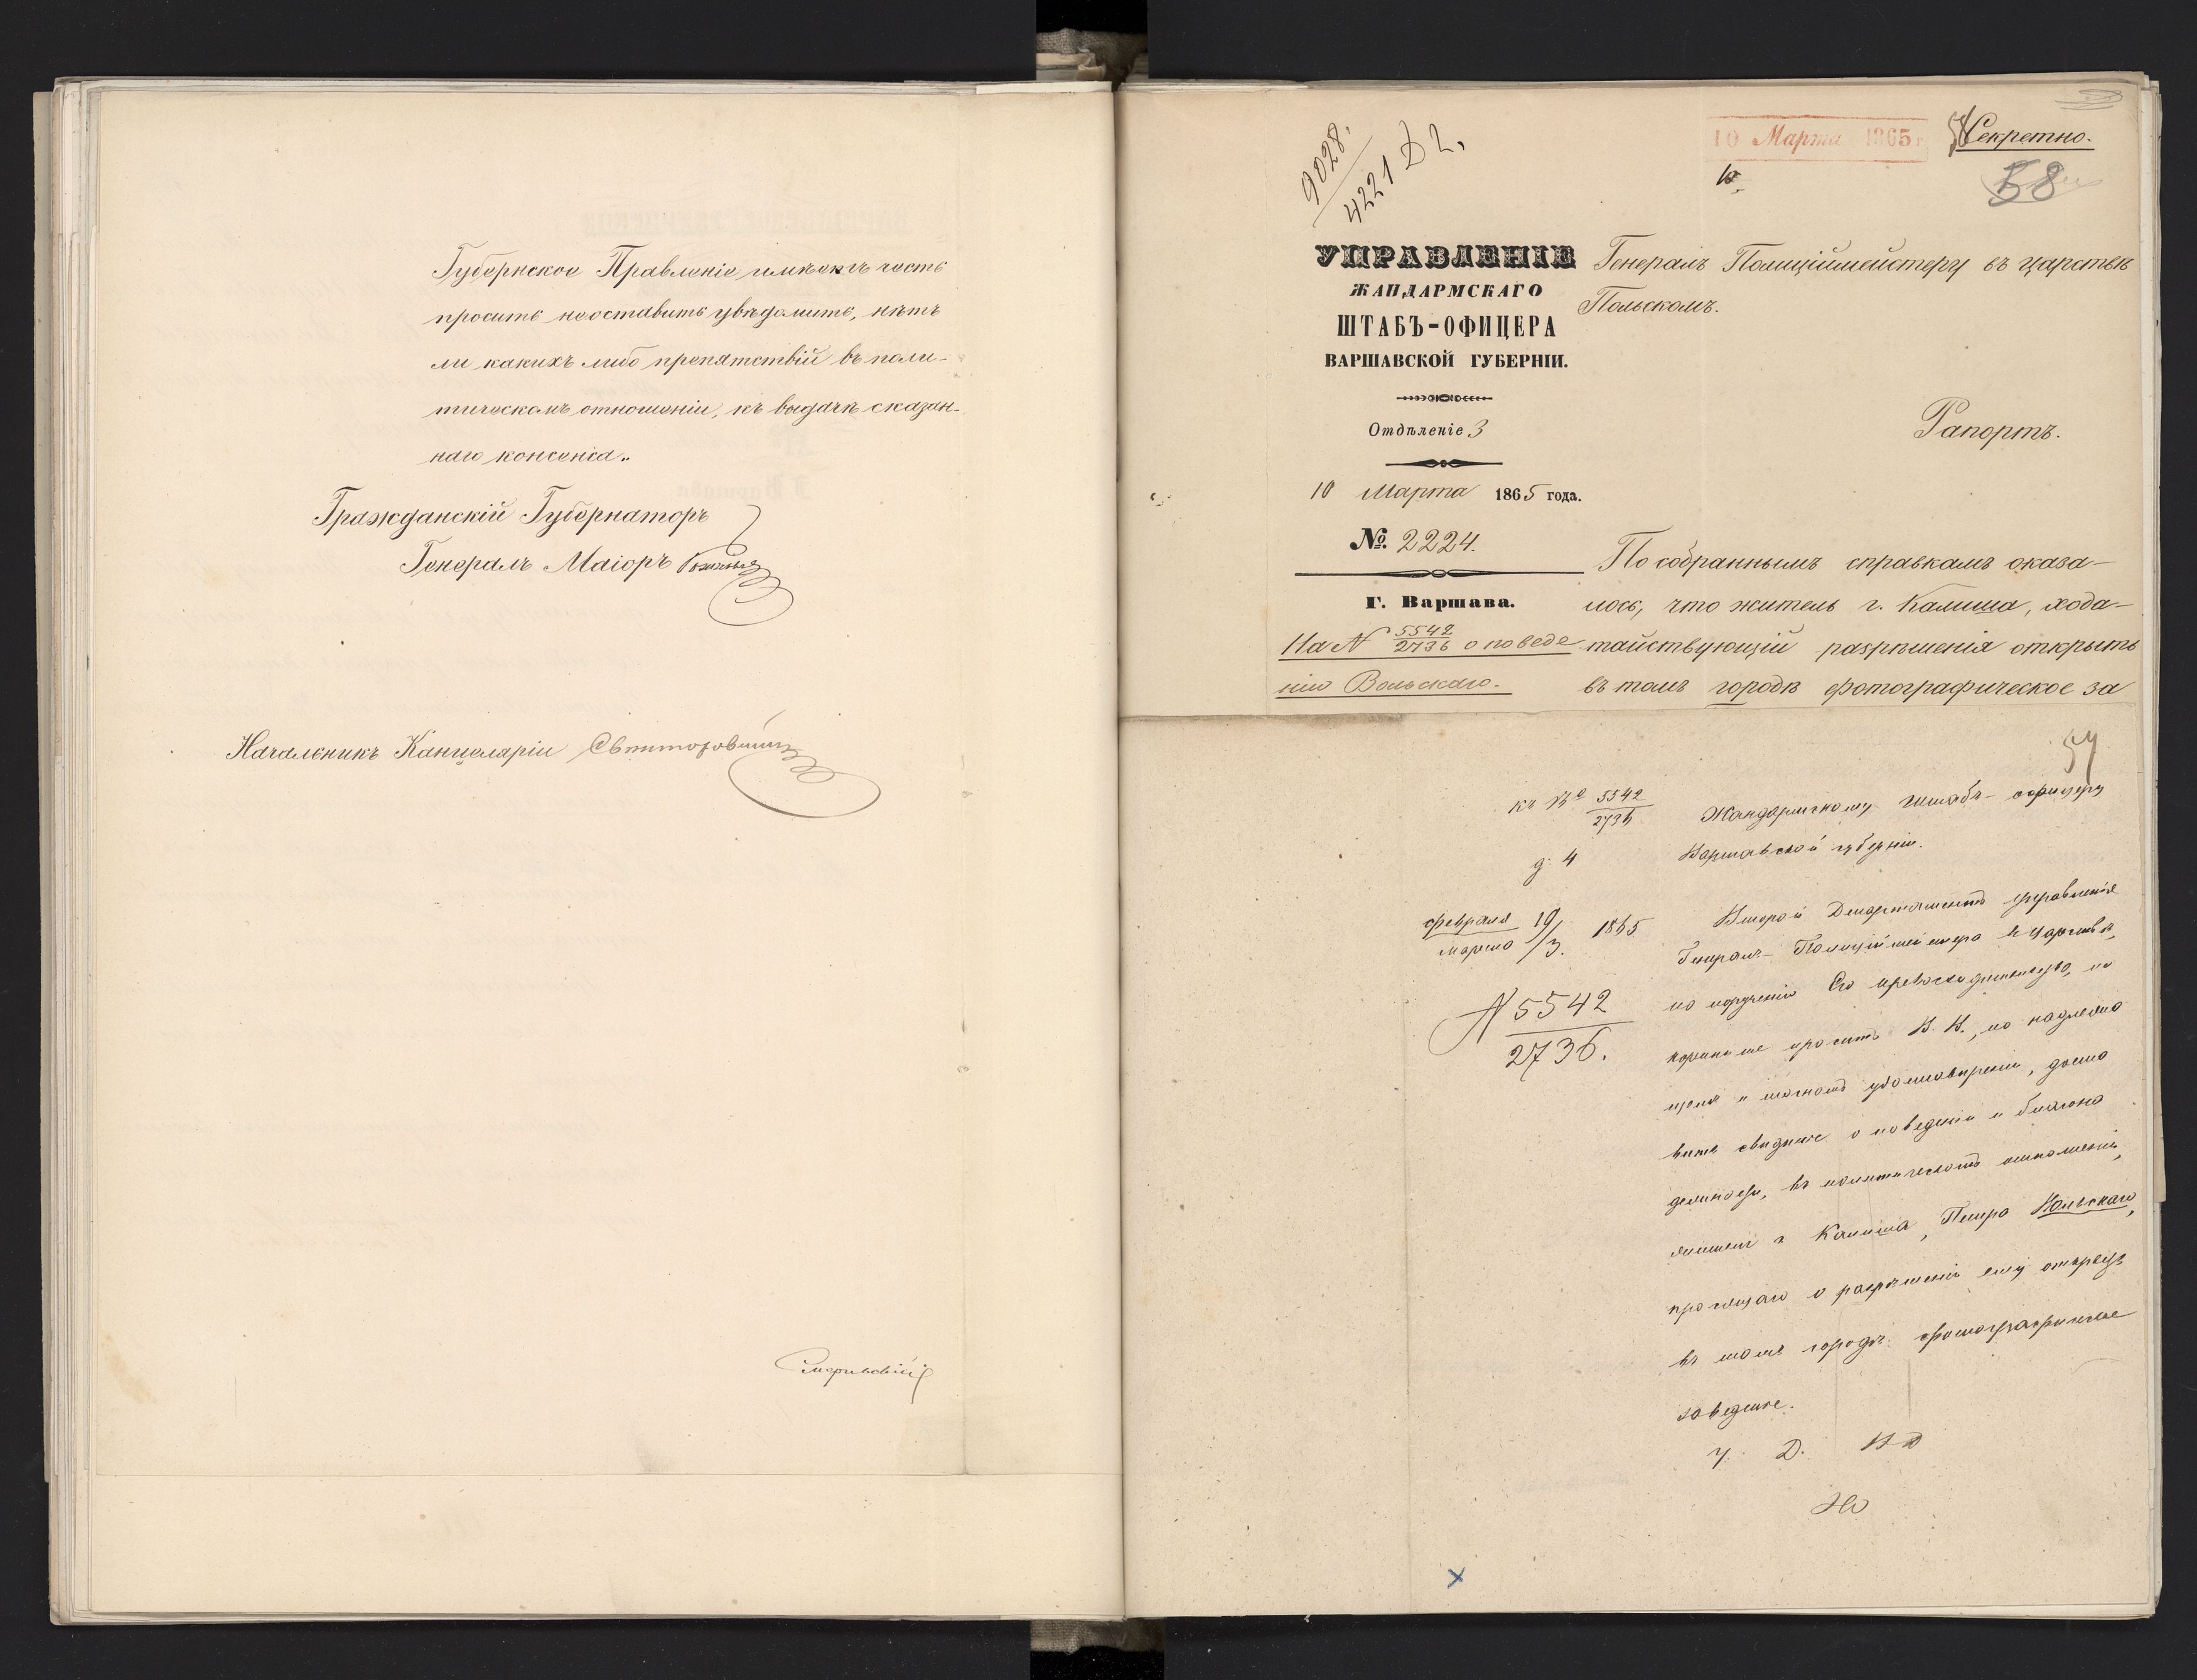 Губернское Правленіе имѣетъ честь
просить неоставить увѣдомить, нѣтъ
ли какихъ либо препятствій въ поли-
тическомъ отношеніи, къ выдачѣ сказан-
наго консенса.
Гражданскій Губернаторъ
Генералъ Маіоръ
Начальникъ Канцеляріи
9028.
4221 Д 2.
10 Марта 1865 г
Секретно.
58
УПРАВЛЕНІЕ
ЖАНДАРМСКАГО
ШТАБЪ-ОФИЦЕРА
ВАРШАВСКОЙ ГУБЕРНІИ.
Отдѣленіе 3
10 Марта 1865 года.
№. 2224.
Г. Варшава.
На N 5542/2736 о поведе
ніи Вольскаго.
Генералъ Полиціймейстеру въ царствѣ
Польскомъ.
Рапортъ.
По собраннымъ справкамъ оказа-
лось, что житель г. Калиша, хода-
тайствующій разрѣшенія открыть
въ томъ городѣ фотографическое за
59
къ № 5542/2736
д. 4
Февраля 19
Марта /3. 1865
N 5542
2736.
Жандармскому штабъ-офицеру
Варшавской губерніи.
Второй Департаментъ Управленія
Генералъ-Полиціймейстера въ Царствѣ,
по порученію Его Превосходительства, по
корнѣйше проситъ В. В., по надлежа
щемъ и точномъ удостовѣреніи, доста
вить свѣдѣніе о поведеніи и благона
дежности, въ политическомъ отношеніи,
жителя г. Калиша, Петра Вольскаго,
просящаго о разрѣшеніи ему открыть
въ томъ городѣ фотографическое
заведеніе.
У. Д. В Д